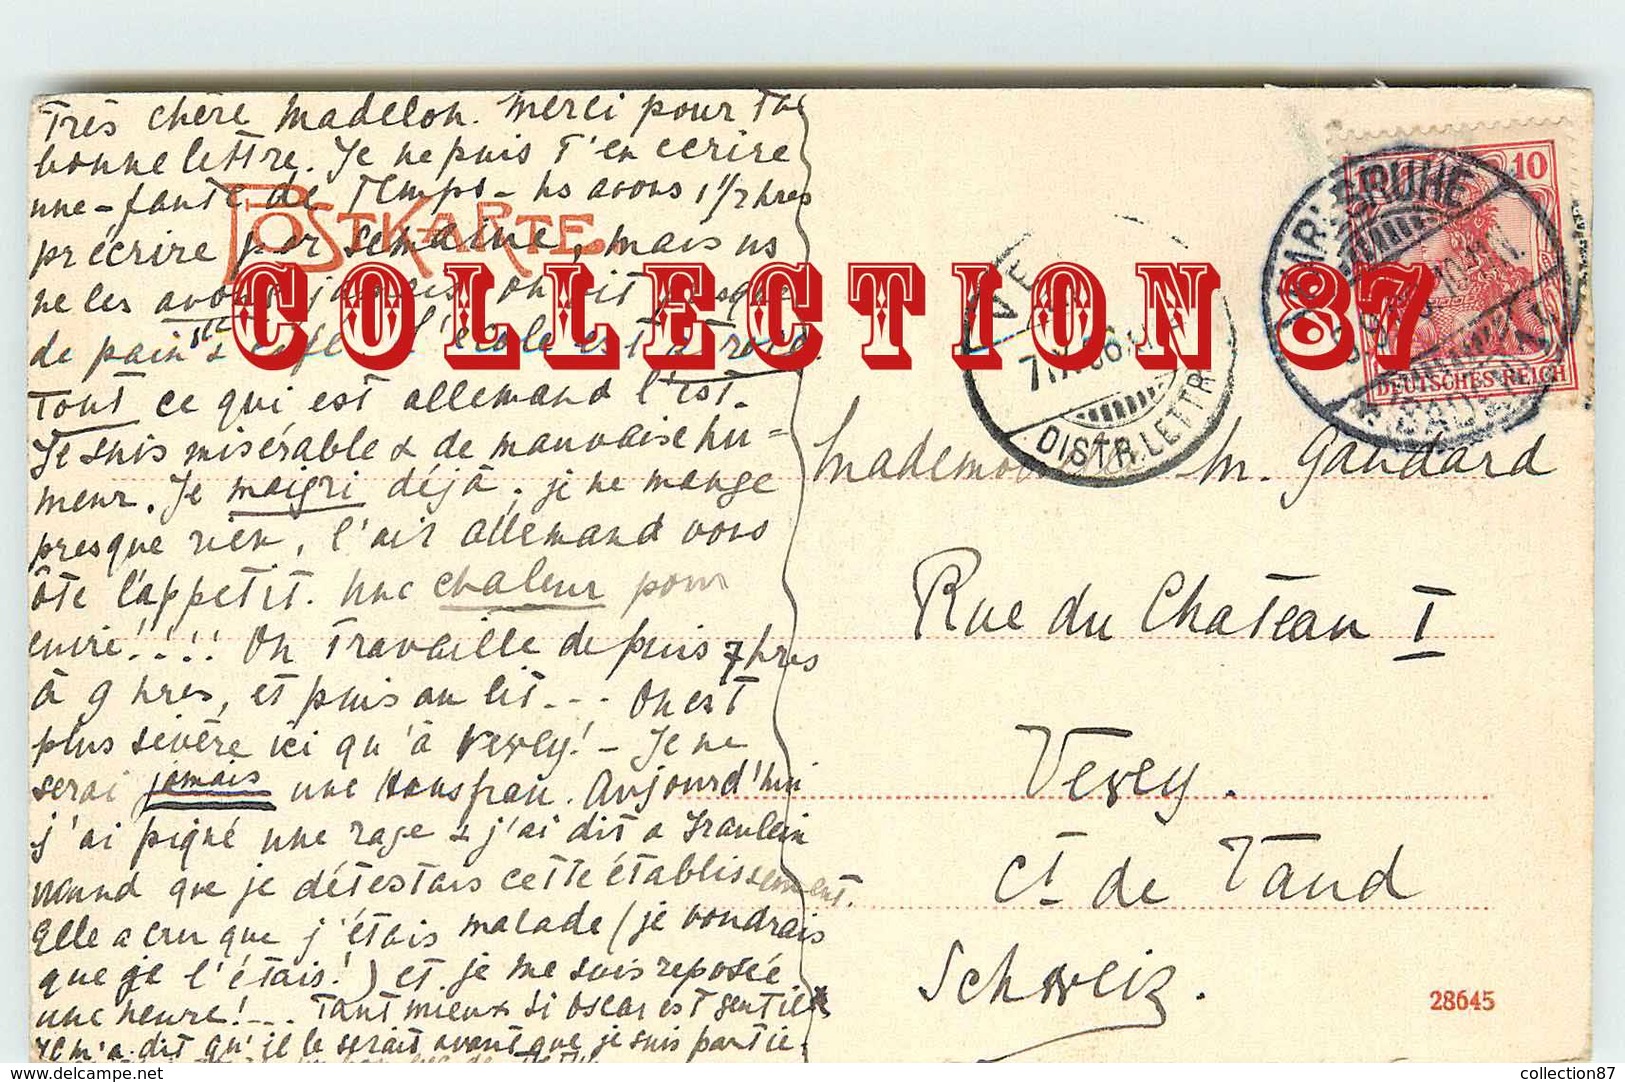 Très chère Madelon. Merci pour ta
bonne lettre. Je ne puis t'en ecrire
une - faute de temps - ns avons 1 1/2 hres
pr écrire par semaine, mais ns
ne les avons jamais on
de pain & l'école est atroce.
Tout ce qui est allemand l'est.
Je suis misérable & de mauvaise hu=
meur. Je maigri déjà, je ne mange
presque rien, l'air allemand vous
ôte l'appetit. Une chaleur pour
cuire!!!! On travaille depuis 7 hres
à 9 hres, et puis au lit... On est
plus sévère ici qu'à Vevey! - Je ne
serai jamais une Hausfrau. Aujourd'hui
j'ai piqué une rage & j'ai dit a Fraulein
que je détestais cette établissement.
Elle a cru que j'étais malade (je voudrais
que je l'étais!) et je me suis reposée
une heure!... Tant mieux si Oscar est gentil
Il m'a dit qu'il le serait avant que je suis partie.
POSTKARTE
COLLECTION 87
VEVEY
7.IX.06
DISTR. LETTR.
KARLSRUHE
10
DEUTSCHES REICH
Mademoiselle M. Gaudard
Rue du Chateau I
Vevey.
Ct de Vaud
Schweiz.
28645
delcampe.net
collection87